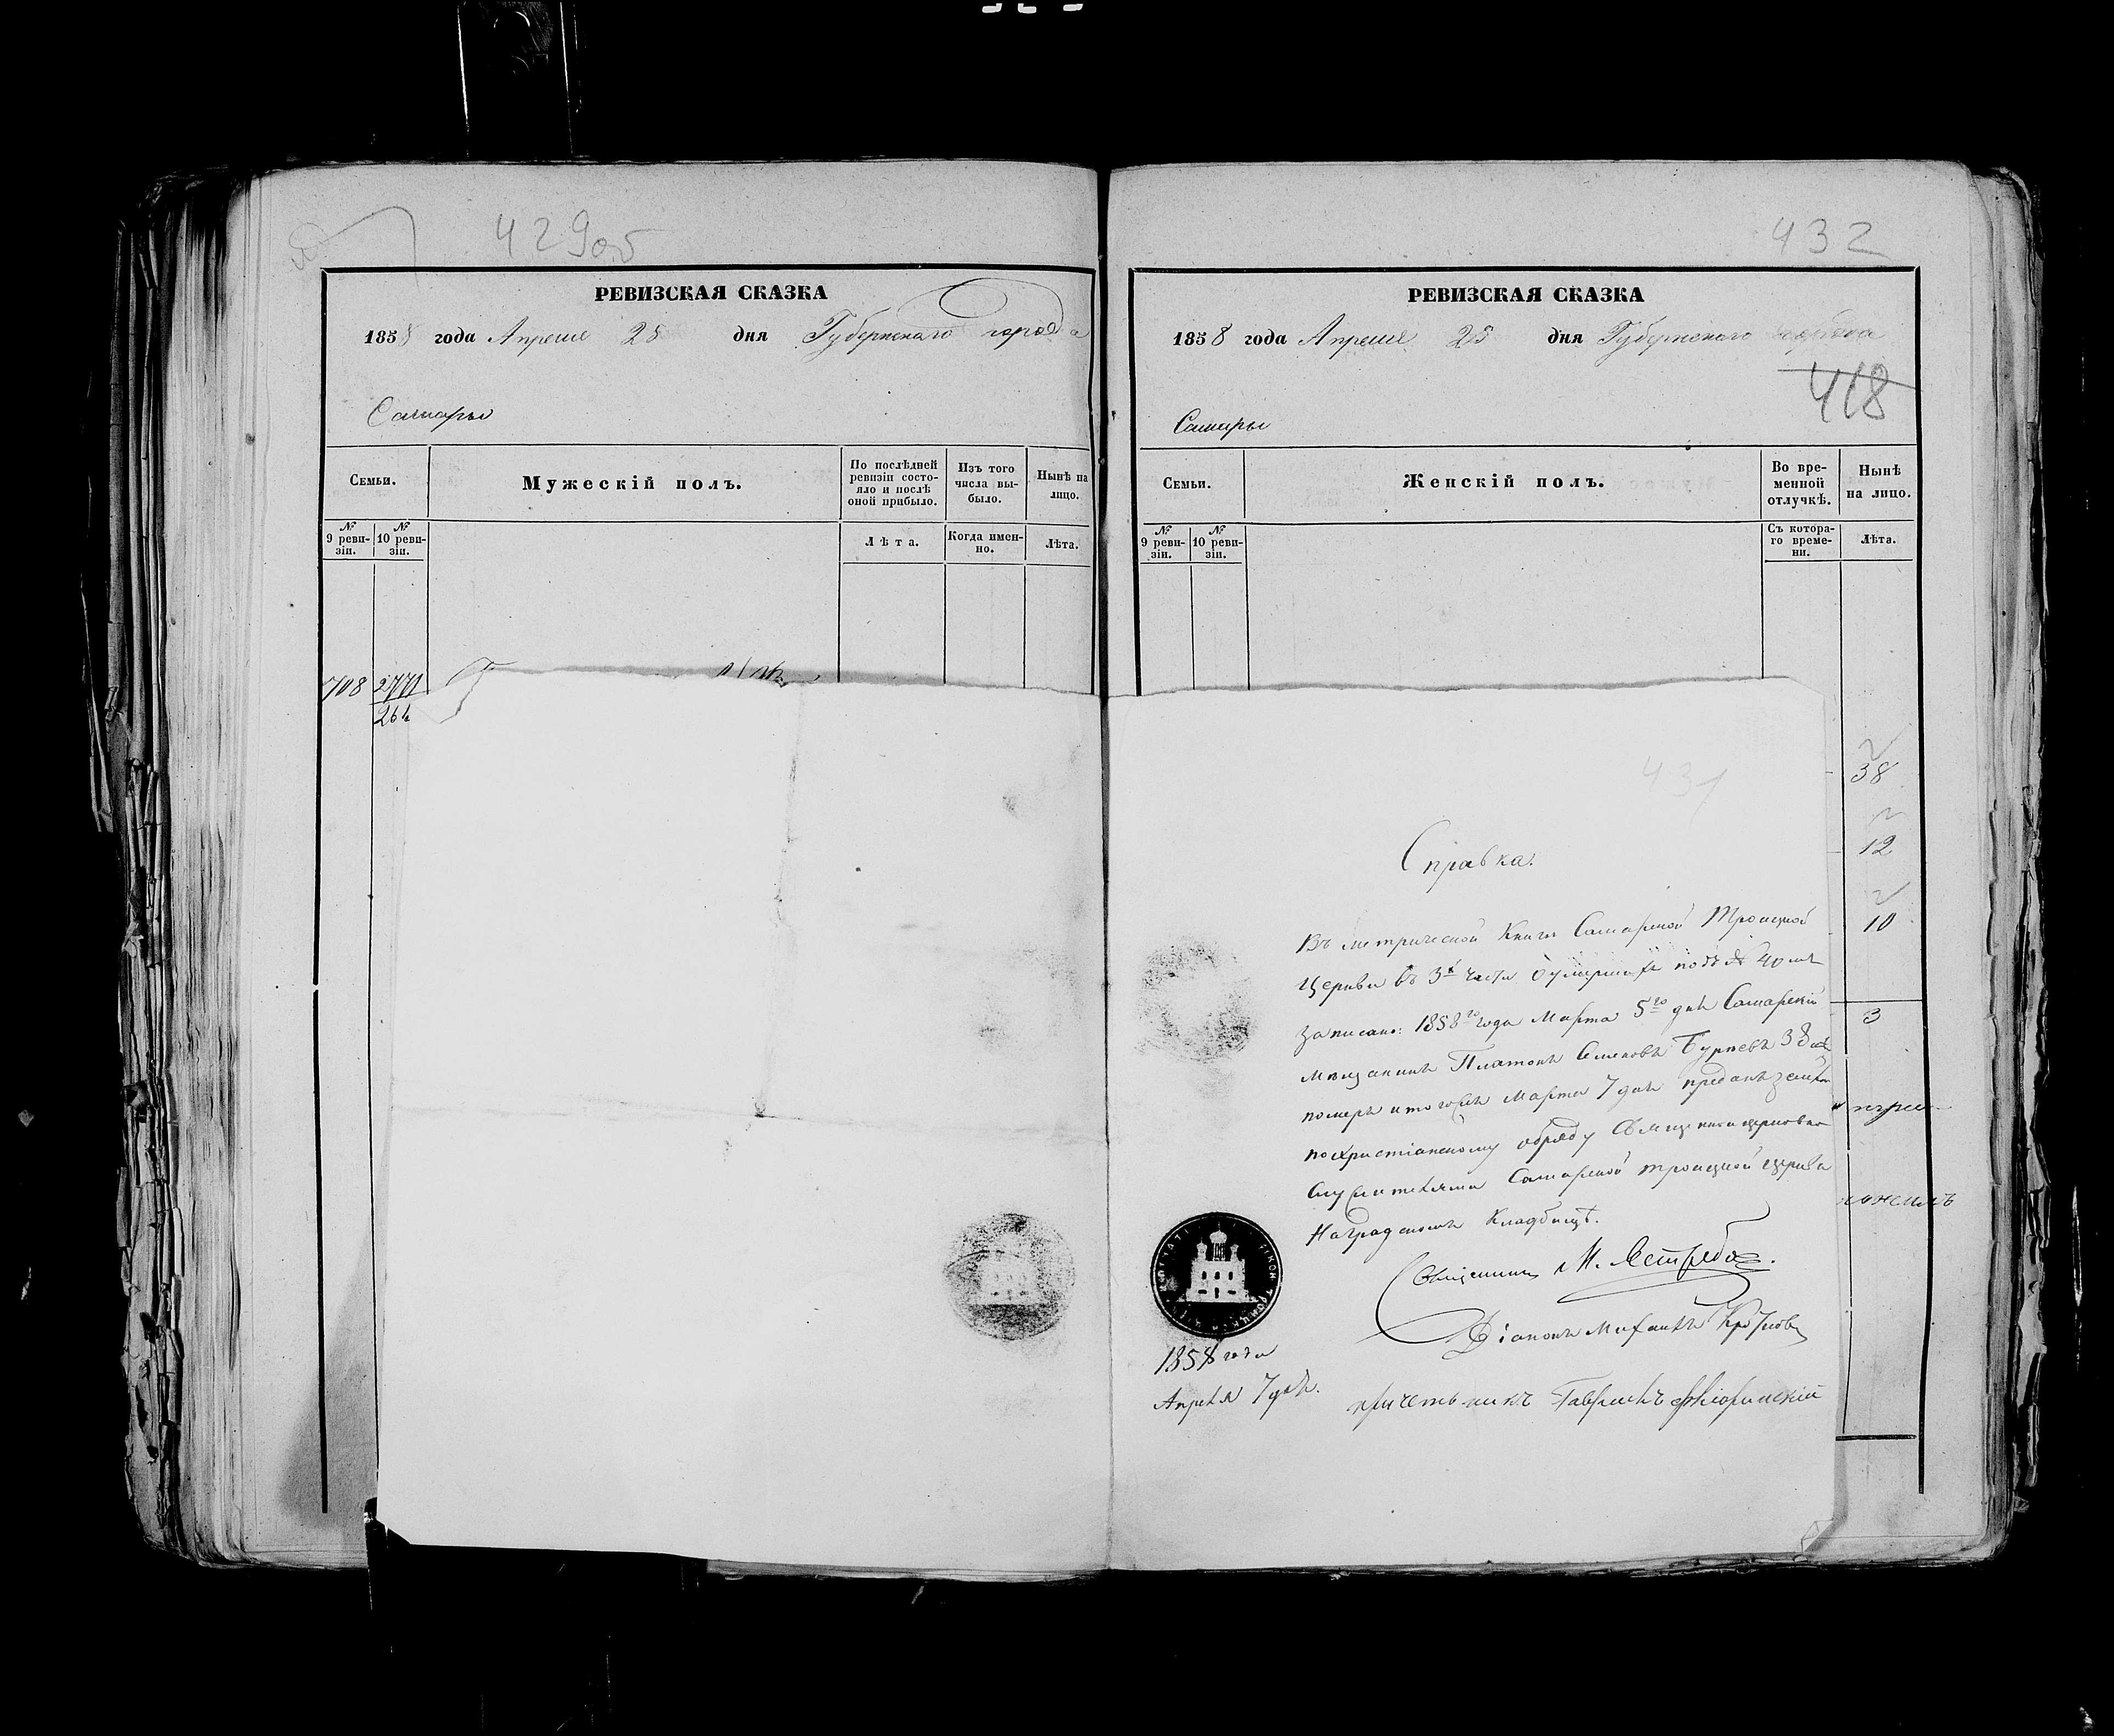 429об
РЕВИЗСКАЯ СКАЗКА
1858 года Апреля 25 дня Губернскаго города
Самары
Семьи.
Мужескій полъ.
По послѣдней ревизіи состояло и послѣ оной прибыло.
Изъ того числа выбыло.
Нынѣ на лицо.
№ 9 ревизіи.
№ 10 ревизіи.
Лѣта.
Когда именно.
Лѣта.
708 2771
264
432
РЕВИЗСКАЯ СКАЗКА
1858 года Апреля 25 дня Губернскаго города
418
Самары
Семьи.
Женскій полъ.
Во временной отлучкѣ.
Нынѣ на лицо.
№ 9 ревизіи.
№ 10 ревизіи.
Съ котораго времени.
Лѣта.
38
12
10
3
431
Справка.
Въ метрической Книгѣ Самарской Троицкой
Церкви въ 3й части о умершихъ подъ № 40мъ
записано: 1858го года Марта 5го дня Самарскій
мѣщанинъ Платонъ Семеновъ 38
померъ и того же Марта 7 дня преданъ земли
по христіанскому обряду Священноцерковно
служителями Самарской троицкой церкви
На градскомъ Кладбищѣ.
Священникъ М. Ястребовъ.
Діаконъ Михаилъ
причетникъ Гавріилъ
1858 года
Апреля 7 дня.